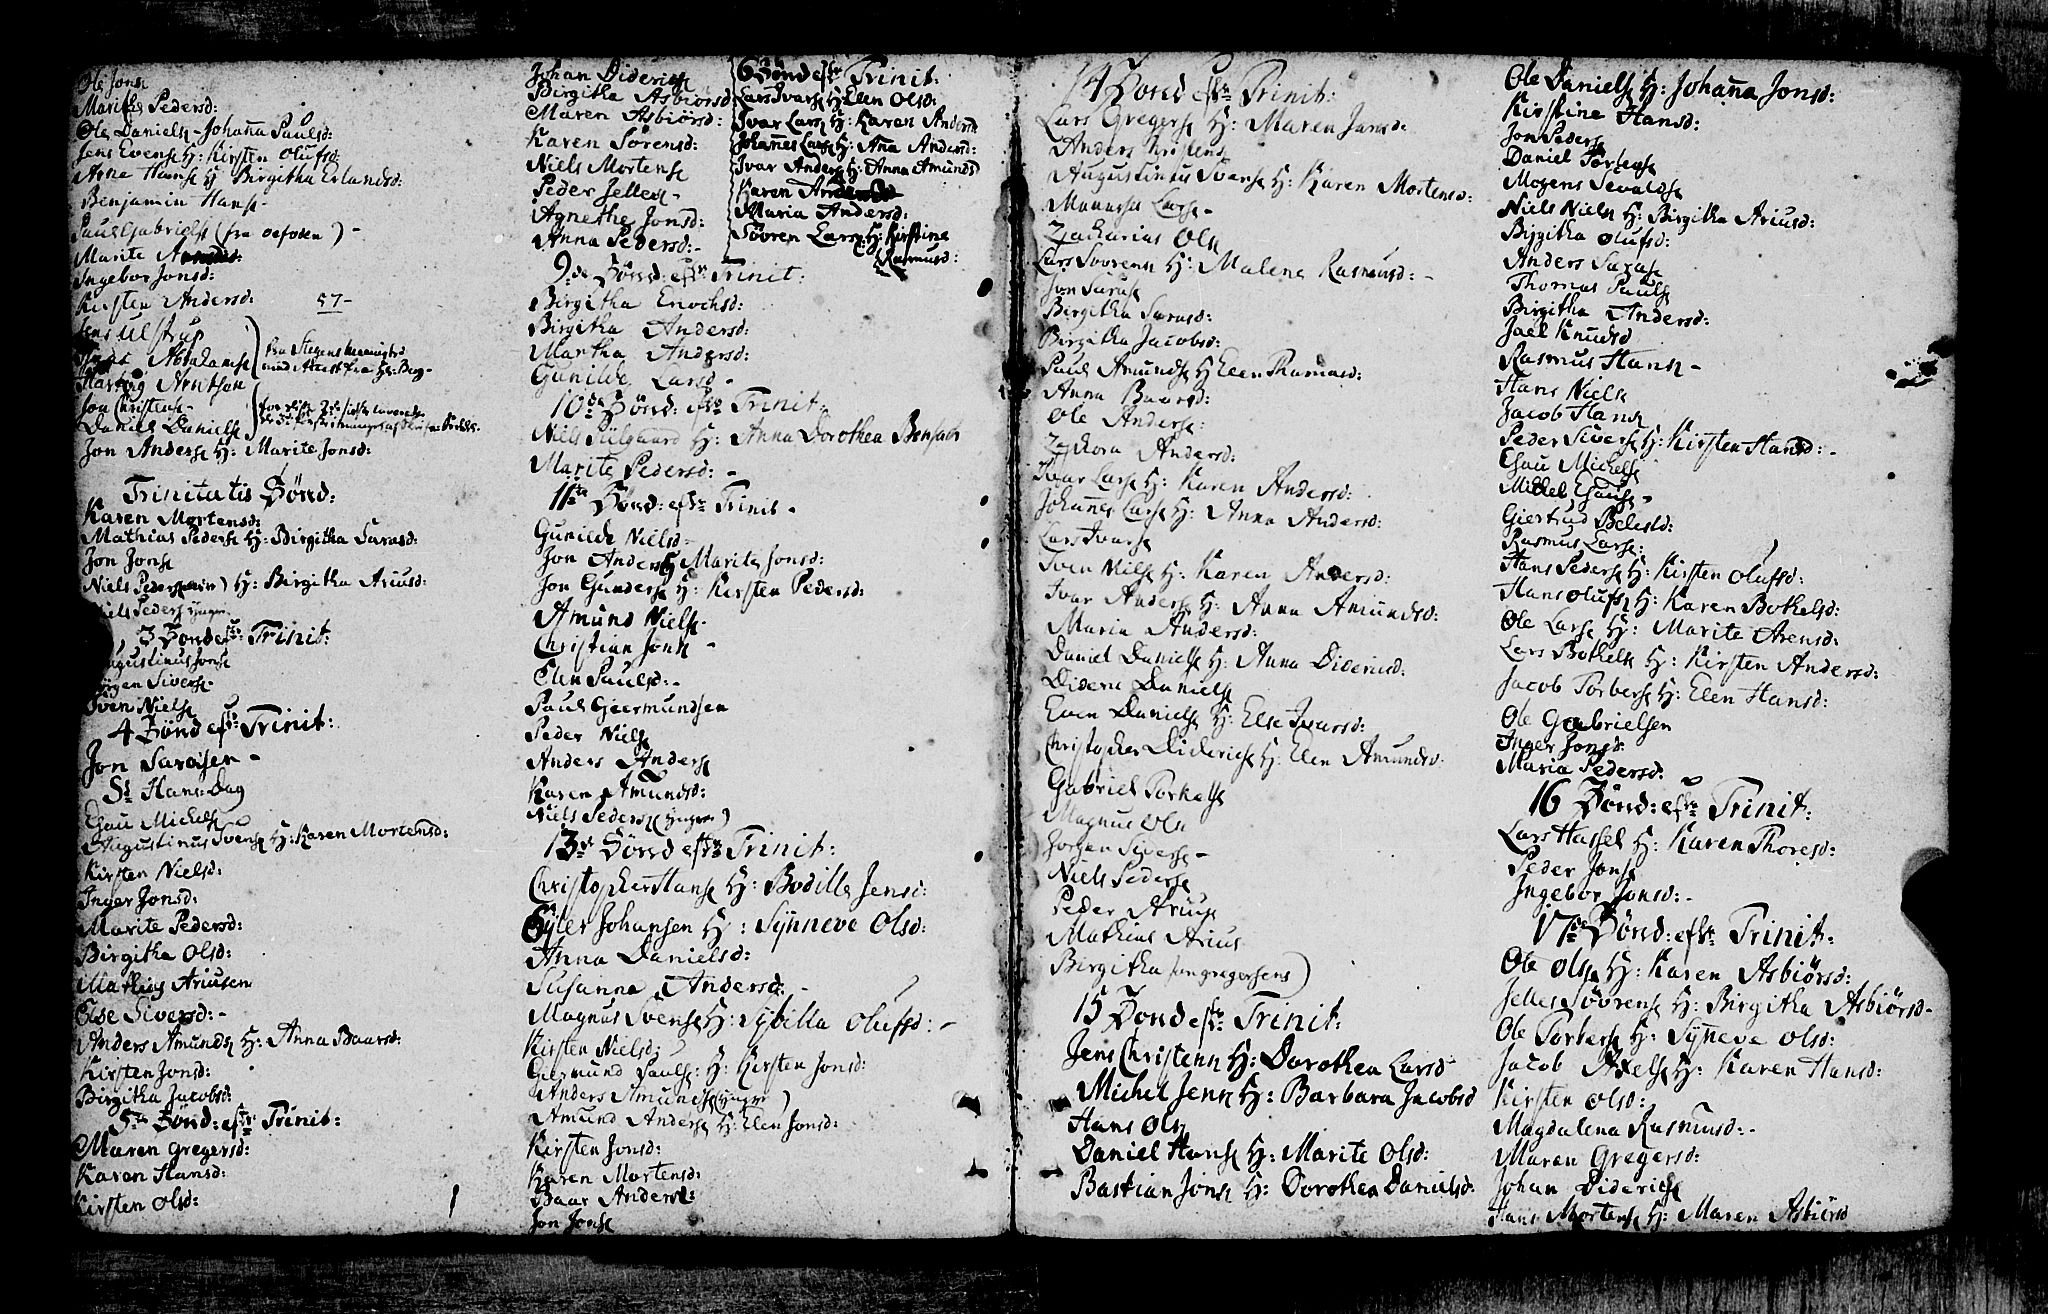 Ole Jons
Marite Pedersd:
Ole Daniels - Johaña Paulsd:
Jens Evens H: Kirsten Olufsd:
Arne Hans H Birgitha Erlandsd:
Benjamin Hans -
Paul Gabriels (fra oefoden) -
Marite
Ingebor Jonsd:
Kirsten Andersd: 57-
Jens Ulstrup
Abrahams
Hartvig Arntson
fra Stegens
med Attest fra Hr: Berg -
Jon Christens -
Daniel Daniels
Jon Anders H: Marite Jonsd:
Trinitatis Sönd:
Karen Mortensd:
Mathias Peders H: Birgitha Sarasd:
Jon Jons
Niels Peders H: Birgitha Ariusd:
Niels Peders yngre
3 Sönd eftr Trinit:
Augustinus Jons
Jörgen Sivers -
Sven Niels
4 Sönd eftr Trinit:
Jon Saraisen -
St Hans Dag
Esau Michels
Augustinus Svens H: Karen Mortensd:
Kirsten Nielsd:
Inger Jonsd:
Marite Pedersd:
Birgitha Olsd:
Mathias Ariusen
Else Siversd: -
Anders Amunds H: Anna Baarsd:
Kirsten Jonsd:
Birgitha Jacobsd:
5te Sönd: eftr Trinit:
Maren Gregersd:
Karen Hansd:
Kirsten Olsd:
Johan Diderichs
Birgitha Asbiörsd:
Maren Asbiörsd:
Karen Sörensd:
Niels Mortens
Peder Jelles -
Agnethe Jonsd:
Anna Pedersd: -
9de Sönd: eftr Trinit:
Birgitha Enochsd:
Birgitha Andersd:
Martha Andersd:
Gunilde Larsd -
10de Sönd: eftr Trinit:
Niels Piilgaard H: Anna Dorothea
Marite Pedersd: -
11te Sönd: eftr Trinit -
Gunilde Nielsd -
Jon Anders H Marite Jonsd:
Jon Gunders H: Kirsten Pedersd:
Amund Niels -
Christian Jons -
Elen Paulsd: -
Paul Geermundsen
Peder Niels
Anders Anders
Karen Amundsd:
Niels Peders (yngre)
13de Sönd eftr Trinit:
Christopher Hans H: Bodilla Jensd:
Eyler Johansen H: Synneve Olsd:
Anna Danielsd:
Susanna Andersd: -
Magnus Svens H: Sybilla Olufsd: -
Kirsten Nielsd:
Giermund Pauls: H: Kirsten Jonsd:
Anders Amunds (yngre)
Amund Anders H: Elen Jonsd:
Kirsten Jonsd:
Karen Mortensd:
Baar Andersd:
Jon Jons
6 Sönd eftr Trinit:
Lars Ivars H: Elen Olsd:
Ivar Lars H: Karen Andersd
Johañes Lars H: Ana Andersd:
Ivar Anders H: Anna Amundsd
Karen Andersd
Maria Andersd:
Sövren Lars: H: Kirstine
Rasmusd:
14 Sönd eftr Trinit:
Lars Gregers H: Maren Jansd:
Anders
Augustinus Svens H: Karen Mortensd:
Manasses Lars -
Zacharias Ols
Lars Sovrens H: Malene Rasmusd: -
Jon Saras
Birgitha Sarasd:
Birgitha Jacobsd:
Paul Amunds H Elen Thomasd:
Anna Baarsd:
Ole Anders:
Zachora Andersd:
Ivar Lars H: Karen Andersd:
Johañes Lars H: Anna Andersd:
Lars Ivars
Sven Niels H: Karen Andersd:
Ivar Anders H: Anna Amundsd:
Maria Andersd:
Daniel Daniels H: Anna Diderisd:
Dideric Daniels
Even Daniels H: Else Ivarsd:
Christopher Diderichs H: Elen Amundsd:
Gabriel Torkels
Magnus Ols
Jörgen Sivers -
Niels Peders
Peder Arius
Mathias Arius
Birgitha Jongregersens)
15 Sönd eftr Trinit:
Jens Christens H: Dorothea Larsd
Michel Jens H: Barbara Jacobsd
Hans Ols
Daniel Hans H: Marite Olsd:
Bastian Jons H: Dorothea Danielsd:
Ole Daniels H: Johaña Jonsd:
Kirstine Hansd:
Jon Peders
Daniel Torbers
Mogens Sevalds
Niels Niels H: Birgitha Ariusd:
Birgitha Olufsd:
Anders Saras
Thomas Pauls
Birgitha Andersd:
Jael Knudsd
Rasmus Hans -
Hans Niels
Jacob Hans
Peder Sivers H: Kirsten Hansd: -
Esau Michels
Michel Esaus -
Giertrud
Rasmus Lars:
Hans Peders H: Kirsten Olufsd:
Hans Olufs H: Karen Bothelsd:
Ole Lars H: Marite Arensd:
Lars Bothels H: Kirsten Andersd:
Jacob Torbers H: Elen Hansd:
Ole Gabrielsen
Inger Jonsd:
Maria Pedersd:
16 Sönd: eftr Trinit:
Lars Hassel H: Karen Thoresd:
Peder Jons
Ingebor Jonsd: -
17te Sönd: eftr Trinit:
Ole Ols H: Karen Asbiörsd:
Jelles Sövrens H: Birgitha Asbiörsd -
Ole Torbers H: Syneve Olsd:
Jacob Axels H: Karen Hansd:
Kirsten Olsd:
Magdalena Rasmusd: -
Maren Gregersd:
Johan Diderichs
Hans Mortens H: Maren Asbiörsd